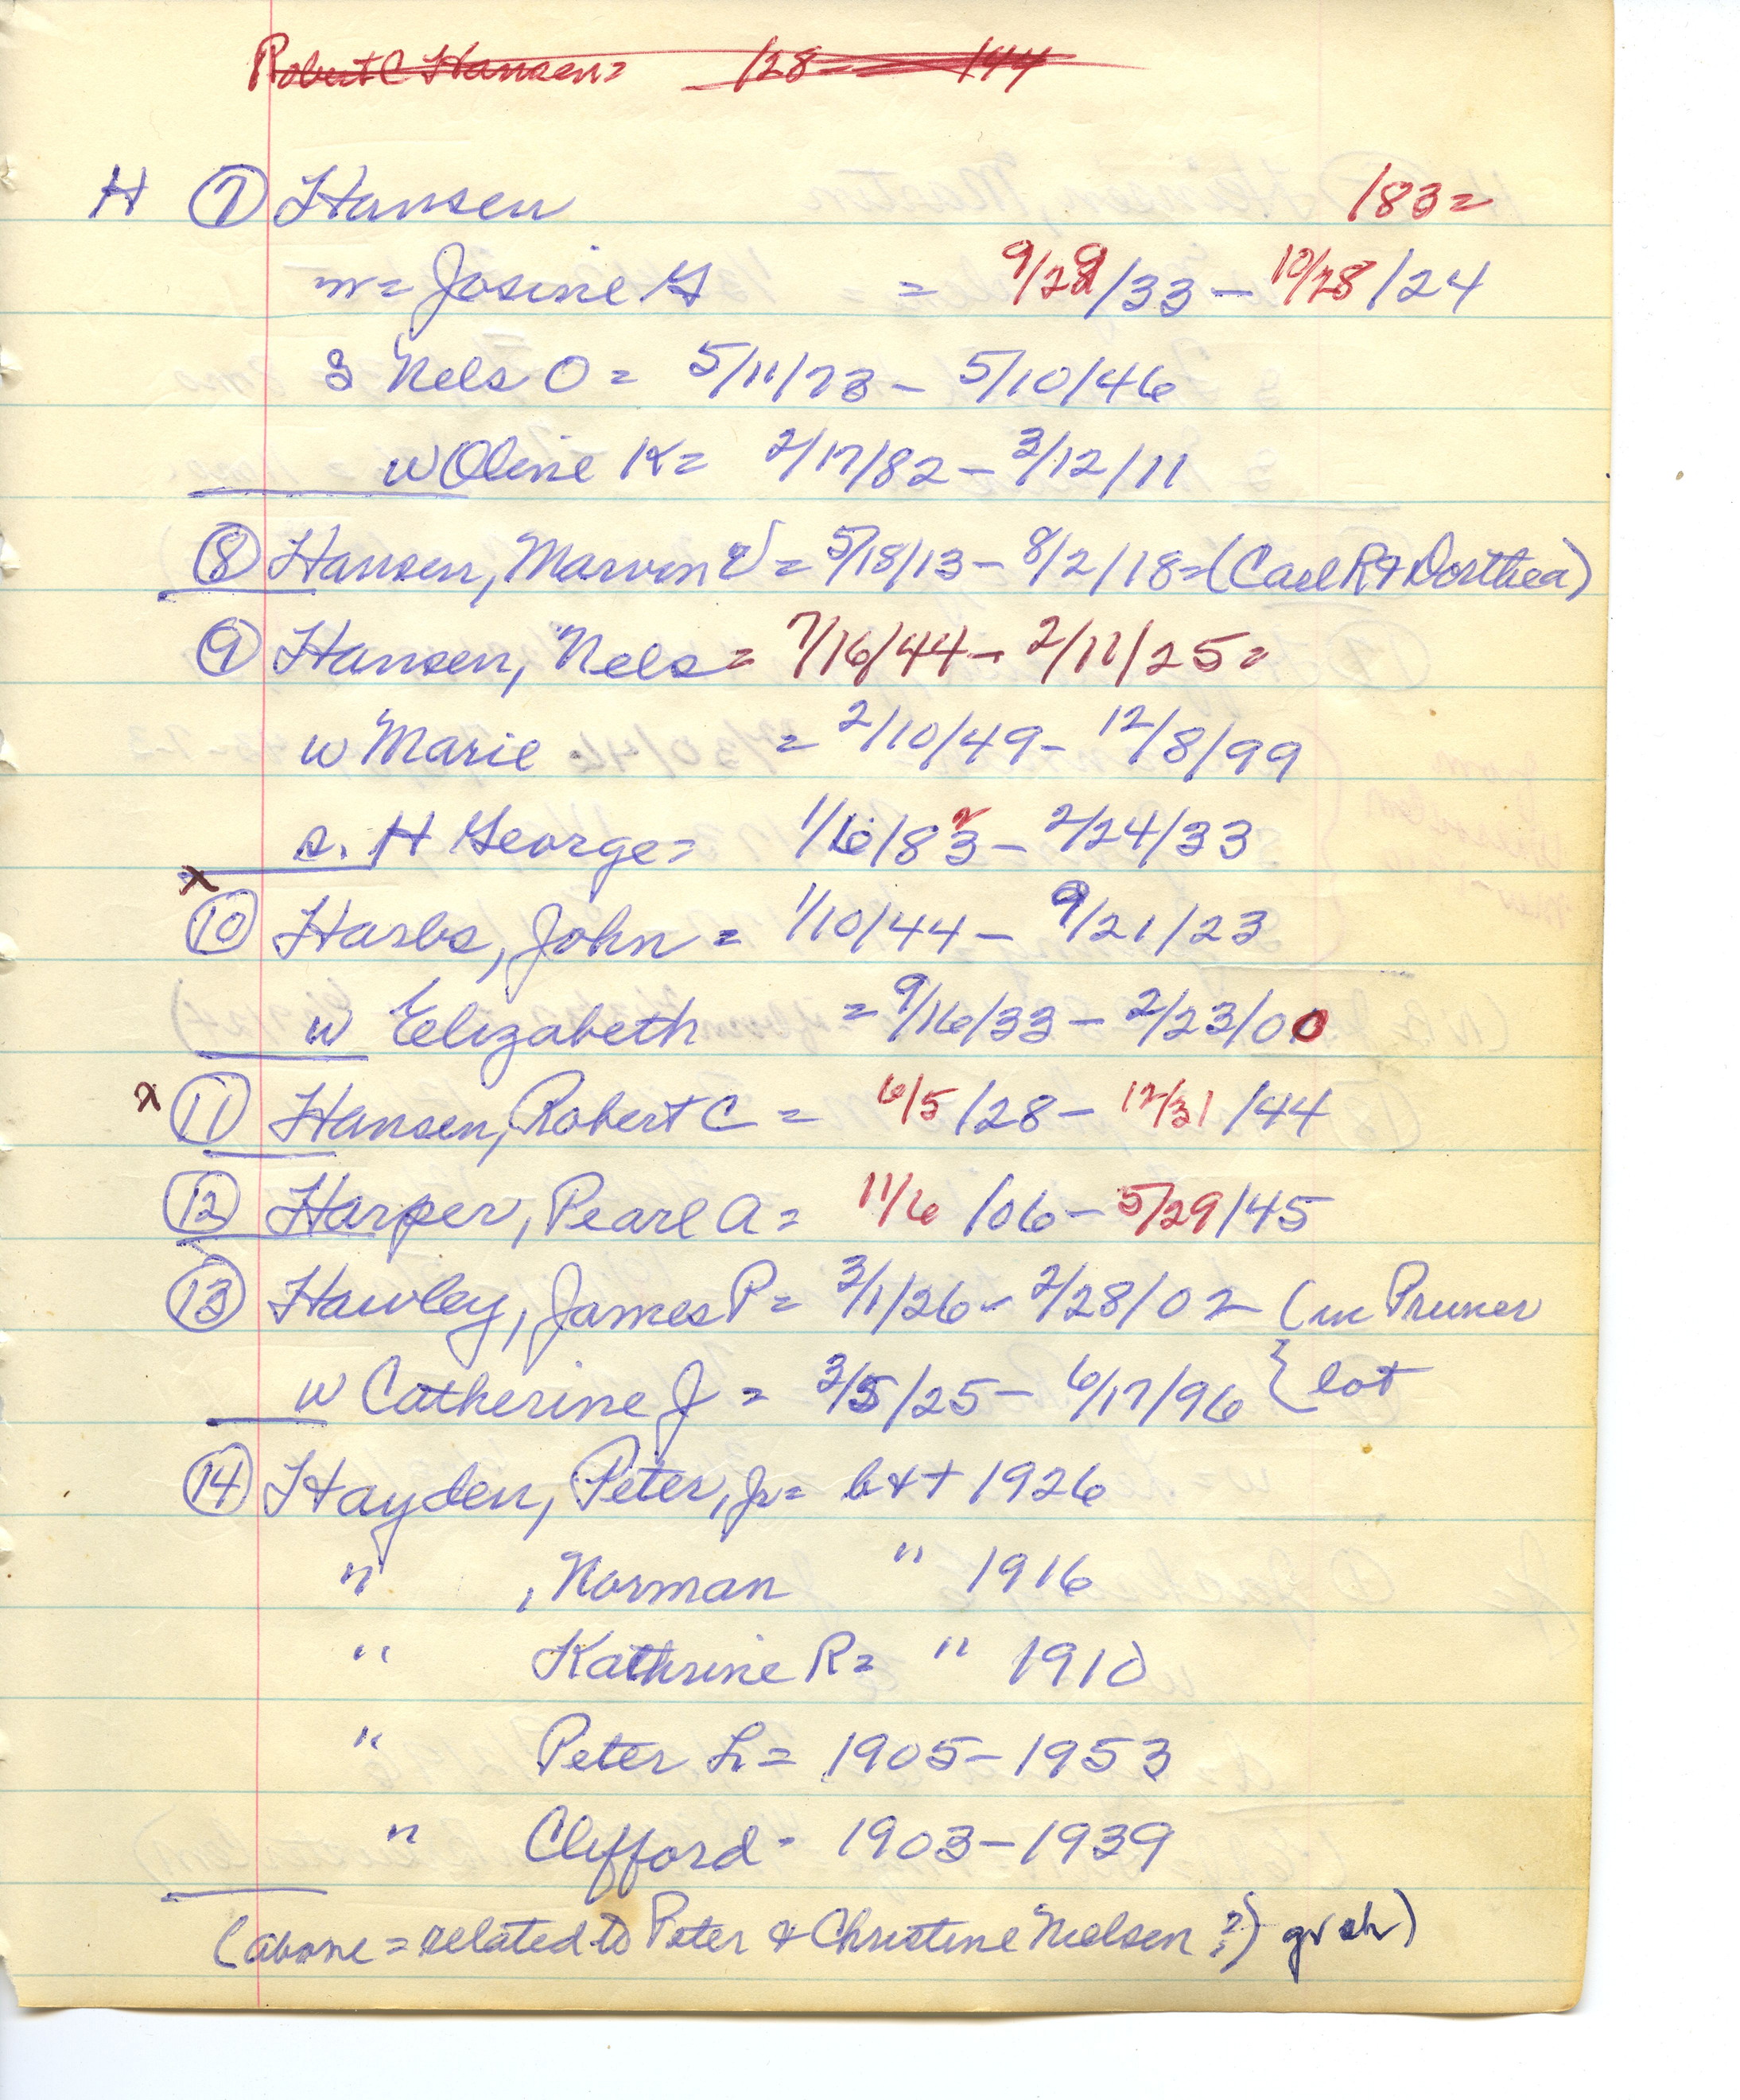 Robert C Hansen= /28 — /44
H (7) Hansen /83=
m= Josine G = 9/29/33 - 10/28/24
s Nels O = 5/11/73 - 5/10/46
w Oline K= 2/17/82 - 3/12/11
(8) Hansen, Marvin V = 5/18/13 - 8/2/18=(Carl R + Dorthea)
(9) Hansen, Nels = 7/16/44 - 2/11/25=
w Marie = 2/10/49 - 12/8/99
s. H George= 1/6/83 2 - 2/24/33
x
(10) Harbs, John = 1/10/44 - 9/21/23
w Elizabeth = 9/16/33 - 2/23/00
x (11) Hansen, Robert C = 6/5/28 - 12/31/44
(12) Harper, Pearl A = 11/6/06 - 5/29/45
(13) Hawley, James P= 3/1/26 - 2/28/02 (in Pruner
w Catherine J = 3/5/25 - 6/17/96 { lot
(14) Hayden, Peter, Jr= b + t 1926
" , Norman " 1916
" Kathrine R= " 1910
" Peter L= 1905-1953
" Clifford - 1903-1939
(above = related to Peter & Christine Nielsen ?) gr ch)